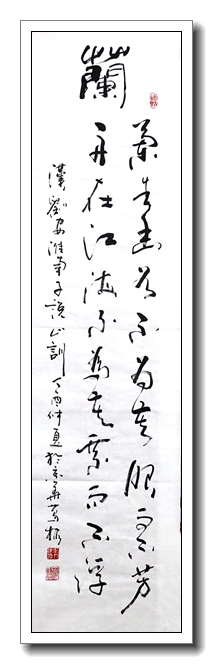 蘭
蘭生幽谷不为莫服而不芳
舟在江海不為莫乘而不浮
漢劉安淮南子說山訓丁酉仲夏於京華